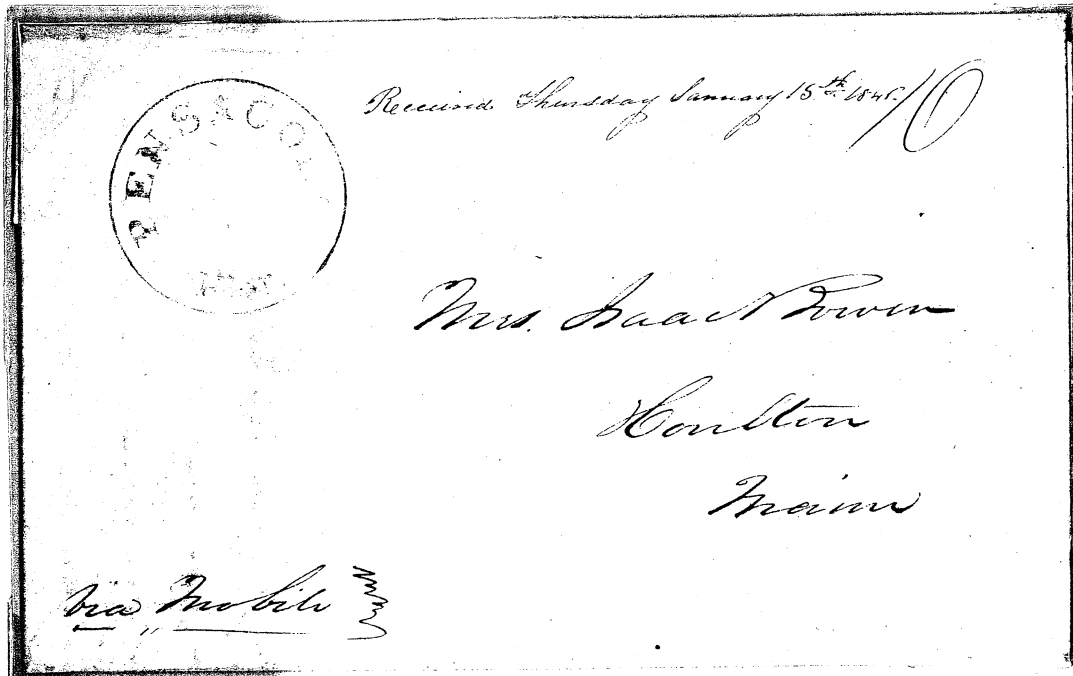 PENSACOL
Received Thursday January 15th
10
Mrs. Isaac Bowen
Houlton
Maine
via Mobile